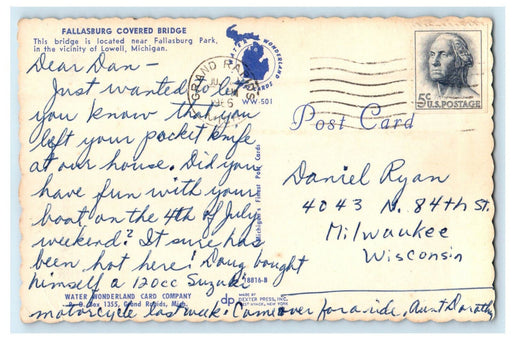 FALLASBURG COVERED BRIDGE
This bridge is located near Fallasburg Park,
in the vicinity of Lowell, Michigan.
Dear Dan—
Just wanted to let
you know that you
left your pocket knife
at our house. Did you
have fun with your
boat on the 4th of July
weekend? It sure has
been hot here! Doug bought
himself a 120cc Suzuki
motorcycle last week. Come over for a ride, Aunt Dorothy
WATER WONDERLAND CARD COMPANY
P. O. Box 1355, Grand Rapids, Mich.
WATER WONDERLAND
WW-501
Michigan's Finest Post Cards
78816-B
dp
MADE BY
DEXTER PRESS, INC.
WEST NYACK, NEW YORK
GRAND RAPIDS
5c
U.S. POSTAGE
Post Card
Daniel Ryan
4043 N. 84th St.
Milwaukee
Wisconsin